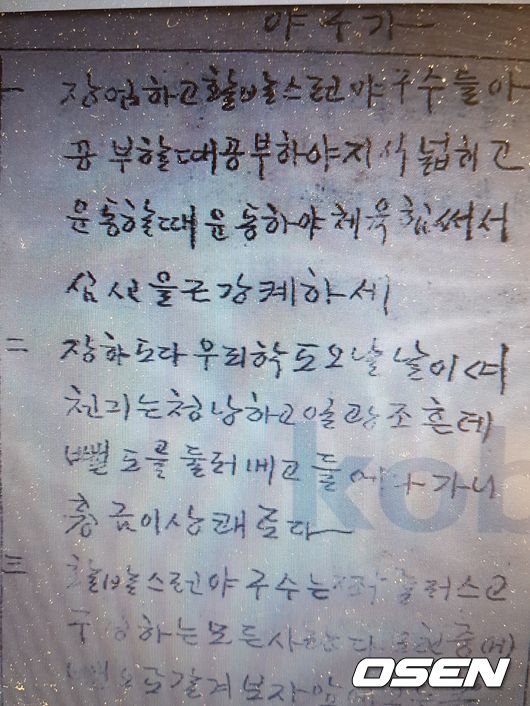 야구가
一 장엄하고활발스런야구수들아
공부할때공부하야지식넓히고
운동할때운동하야체육힘써서
심신을근강케하세
二 장하도다우리학도오날날이여
천기는청낭하고일광조흔데
뻘도를둘러메고들에나가니
흉금이상쾌로다
三 활발스런야구수는 눌러스고
구경하는모든사람다
갈겨보자
kob
OSEN